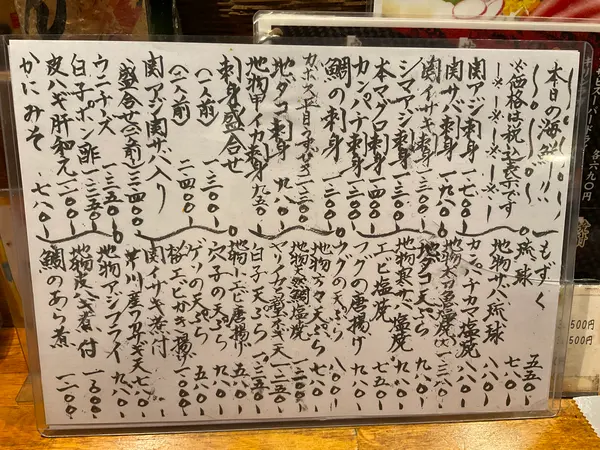 本日の海鮮!!
※価格は税込表示です
関アジ刺身 一七〇〇
関サバ刺身 一九八〇
関イサキ刺身 一三〇〇
シマアジ刺身 一三〇〇
本マグロ刺身 一四〇〇
カンパチ刺身
鯛の刺身
地ダコ刺身 九八〇
地物甲イカ刺身 九五〇
刺身盛合せ
(一人前) 一三〇〇
(二人前) 二四〇〇
関アジ関サバ入り
盛合せ(二人前) 三二四〇〇
ウニチーズ 一三五〇
白子ポン酢 一三五〇
皮ハギ肝和え 一一〇〇
かにみそ 七八〇
もずく 五五〇
琉球 七八〇
地物サバ琉球 八八〇
カンパチカマ塩焼 八八〇
地物太刀魚塩焼(大) 一三八〇
地ダコ天ぷら 九八〇
地物寒サバ塩焼 九八〇
エビ塩焼 七五〇
フグの唐揚げ 九八〇
フグの天ぷら
地物キス天ぷら 七八〇
地物天然鯛塩焼 一二〇〇
白子天ぷら 一三五〇
地物小エビ唐揚 八八〇
穴子の天ぷら
ゲソの天ぷら 五八〇
桜エビかき揚
関イサキ煮付
地物アジフライ 九八〇
地物皮ハギ煮付 一六〇〇
鯛のあら煮 一二〇〇
各六九〇円
500円
500円